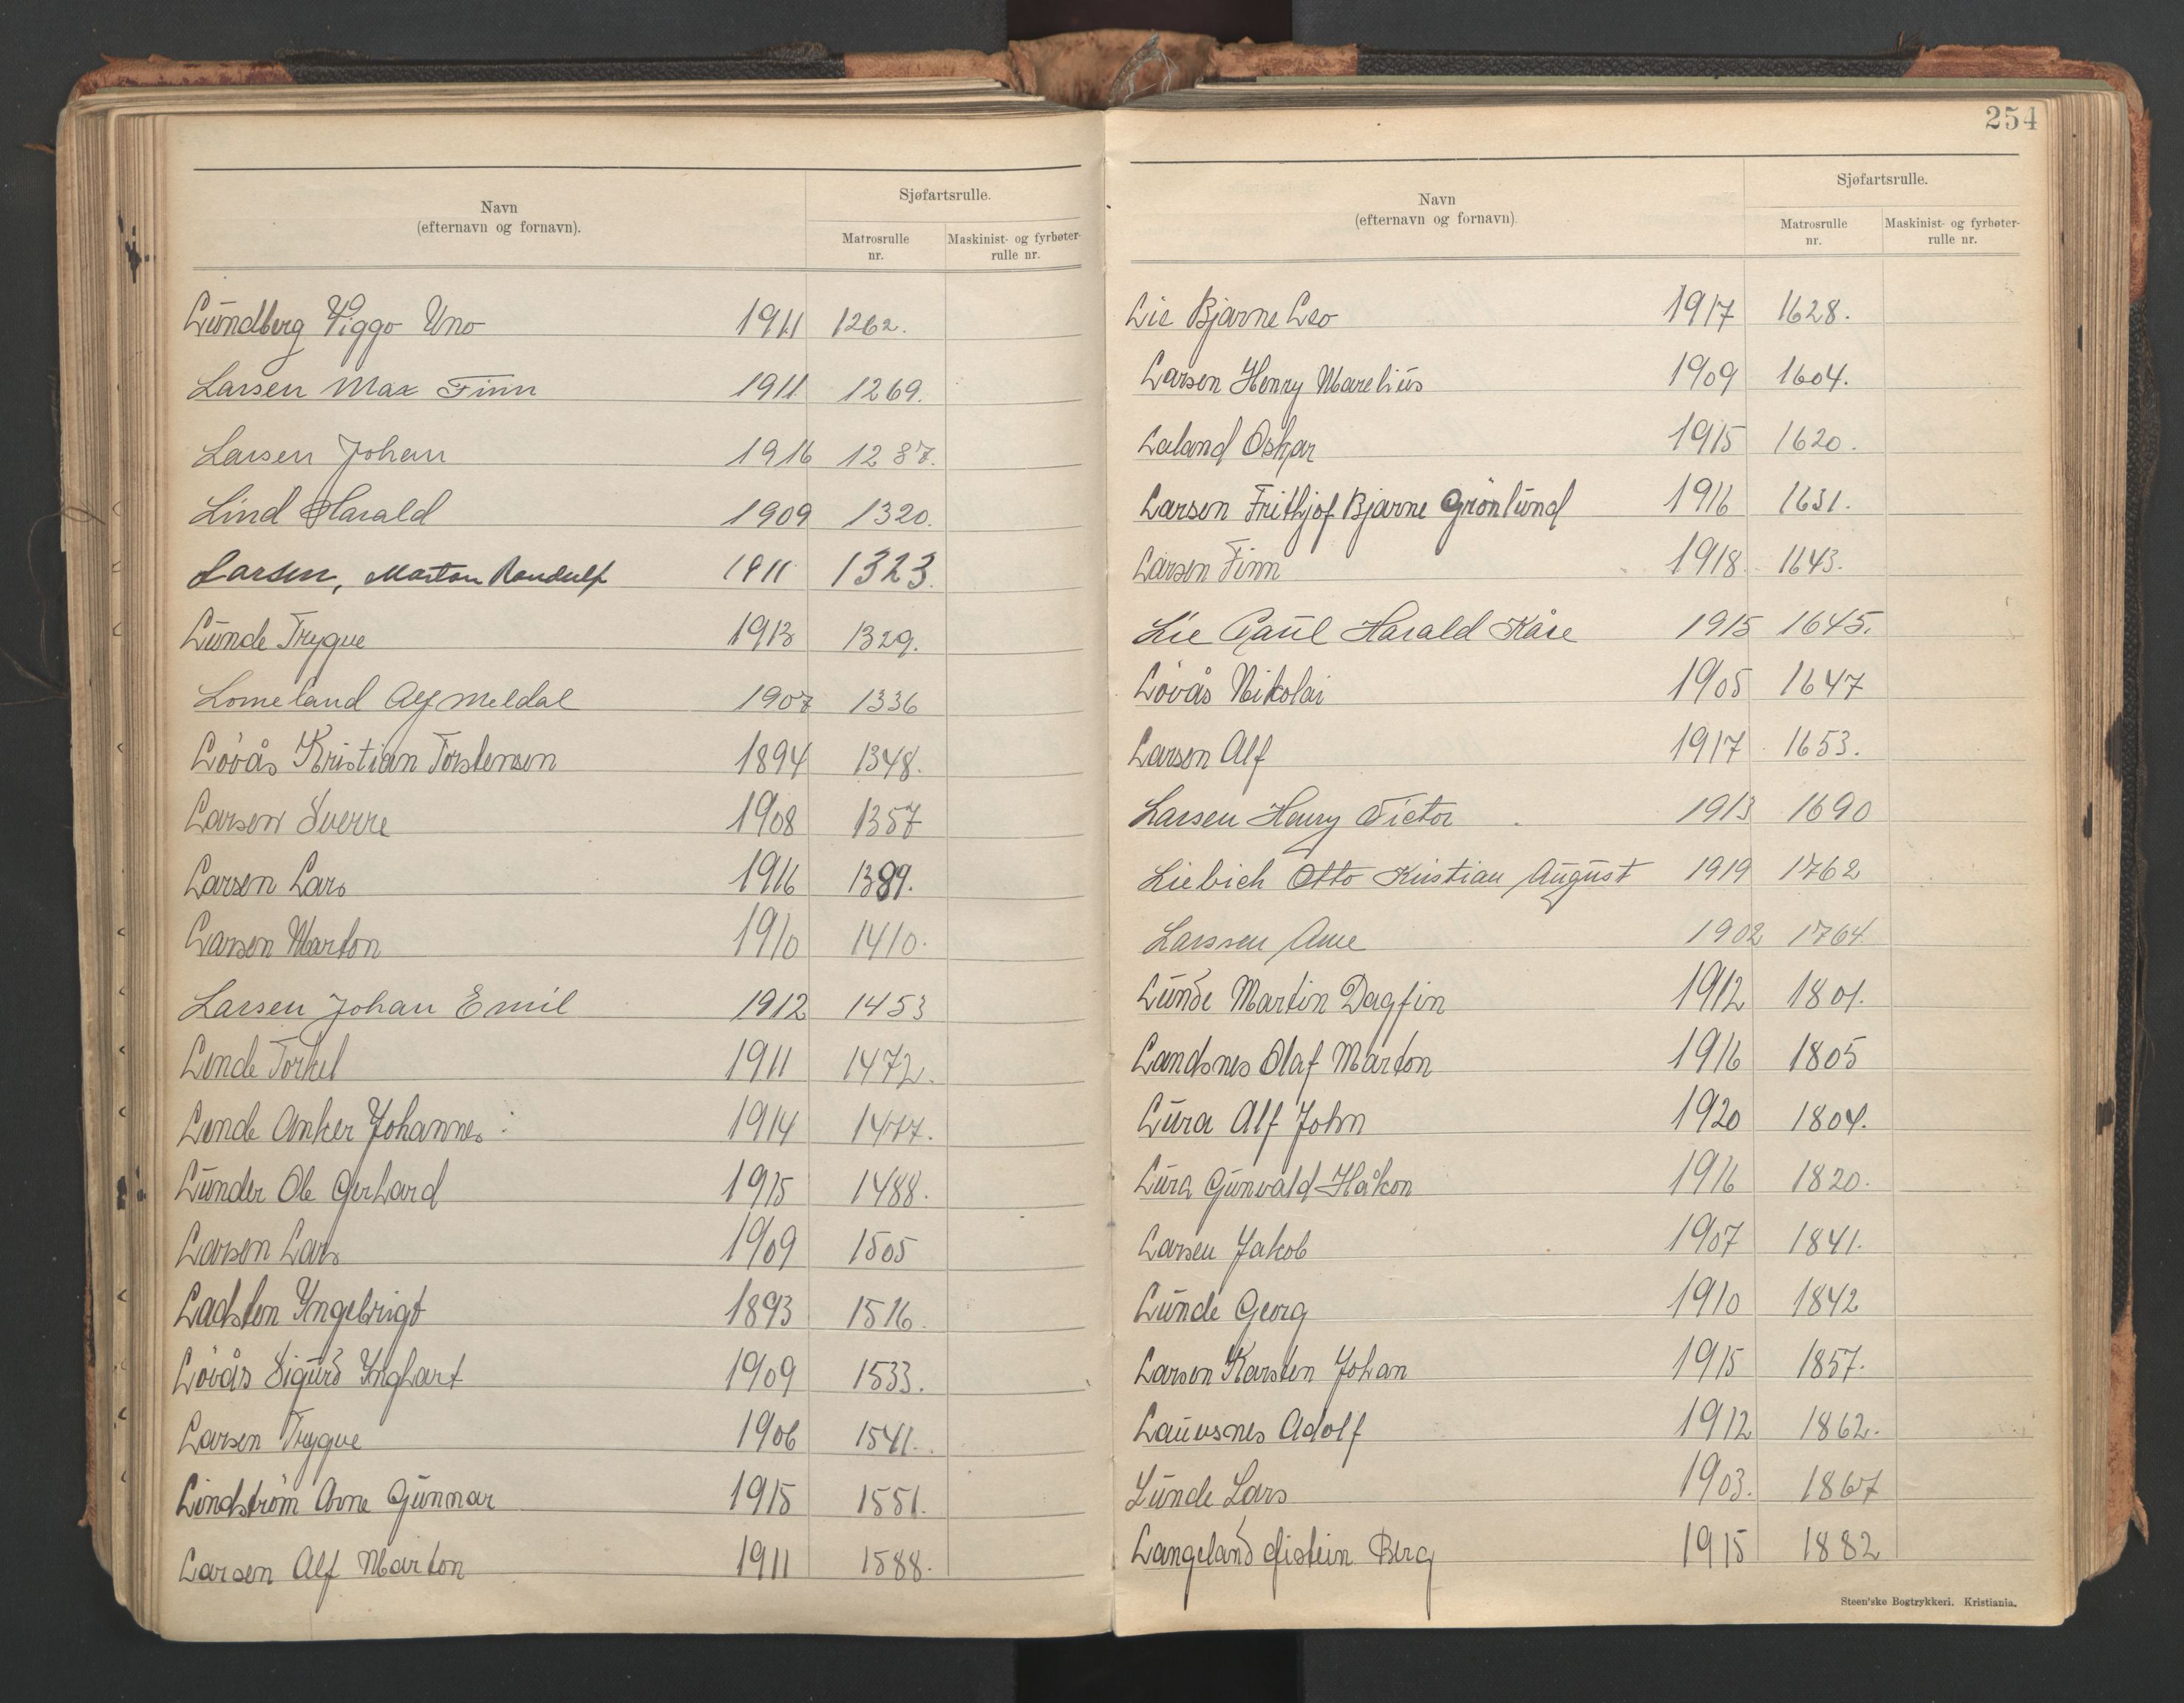 Navn
(efternavn og fornavn).
Sjøfartsrulle.
Matrosrulle nr.
Maskinist- og fyrbøter-rulle nr.
Lundberg Viggo Uno 1911 1262.
Larsen Max Finn 1911 1269.
Larsen Johan 1916 1287.
Lind Harald 1909 1320.
Larsen, Marton Randulf 1911 1323.
Lunde Trygve 1913 1329.
Lomeland Alf Meldal 1907 1336
Lövås Kristian Torstensen 1894 1348.
Larsen Sverre 1908 1357
Larsen Lars 1916 1389.
Larsen Marton 1910 1410.
Larsen Johan Emil 1912 1453
Linde Torkel 1911 1472.
Linde Anker Johannes 1914 1477.
Lunder Ole Gerhard 1915 1488.
Larsen Lars 1909 1505
Ladsten Yngebrigt 1893 1516.
Lövås Sigurd Ynghart 1909 1533.
Larsen Trygve 1906 1541.
Lindström Arne Gunnar 1915 1551.
Larsen Alf Marton 1911 1588.
254
Navn
(efternavn og fornavn).
Sjøfartsrulle.
Matrosrulle nr.
Maskinist- og fyrbøter-rulle nr.
Lie Bjarne Leo 1917 1628.
Larsen Henry Marelius 1909 1604.
Laland Oskar 1915 1620.
Larsen Frithjof Bjarne Grönlund 1916 1631.
Larsen Finn 1918. 1643.
Lie Paul Harald Kåre 1915 1645.
Lövås Nikolai 1905 1647
Larsen Alf 1917 1653.
Larsen Henry Victor 1913 1690
Liebich Otto Kristian August 1919 1762
Larssen Arne 1902 1764
Lunde Martin Dagfin 1912 1801.
Landsnes Olaf Marton 1916 1805
Lura Alf John 1920 1804.
Lura Gunvald Håkon 1916 1820.
Larsen Jakob 1907 1841.
Lunde Georg 1910 1842
Larsen Karsten Johan 1915 1857.
Lauvsnes Adolf 1912 1862.
Lunde Lars 1903. 1867
Langeland Øistein Berg 1915 1882
Steen'ske Bogtrykkeri. Kristiania.